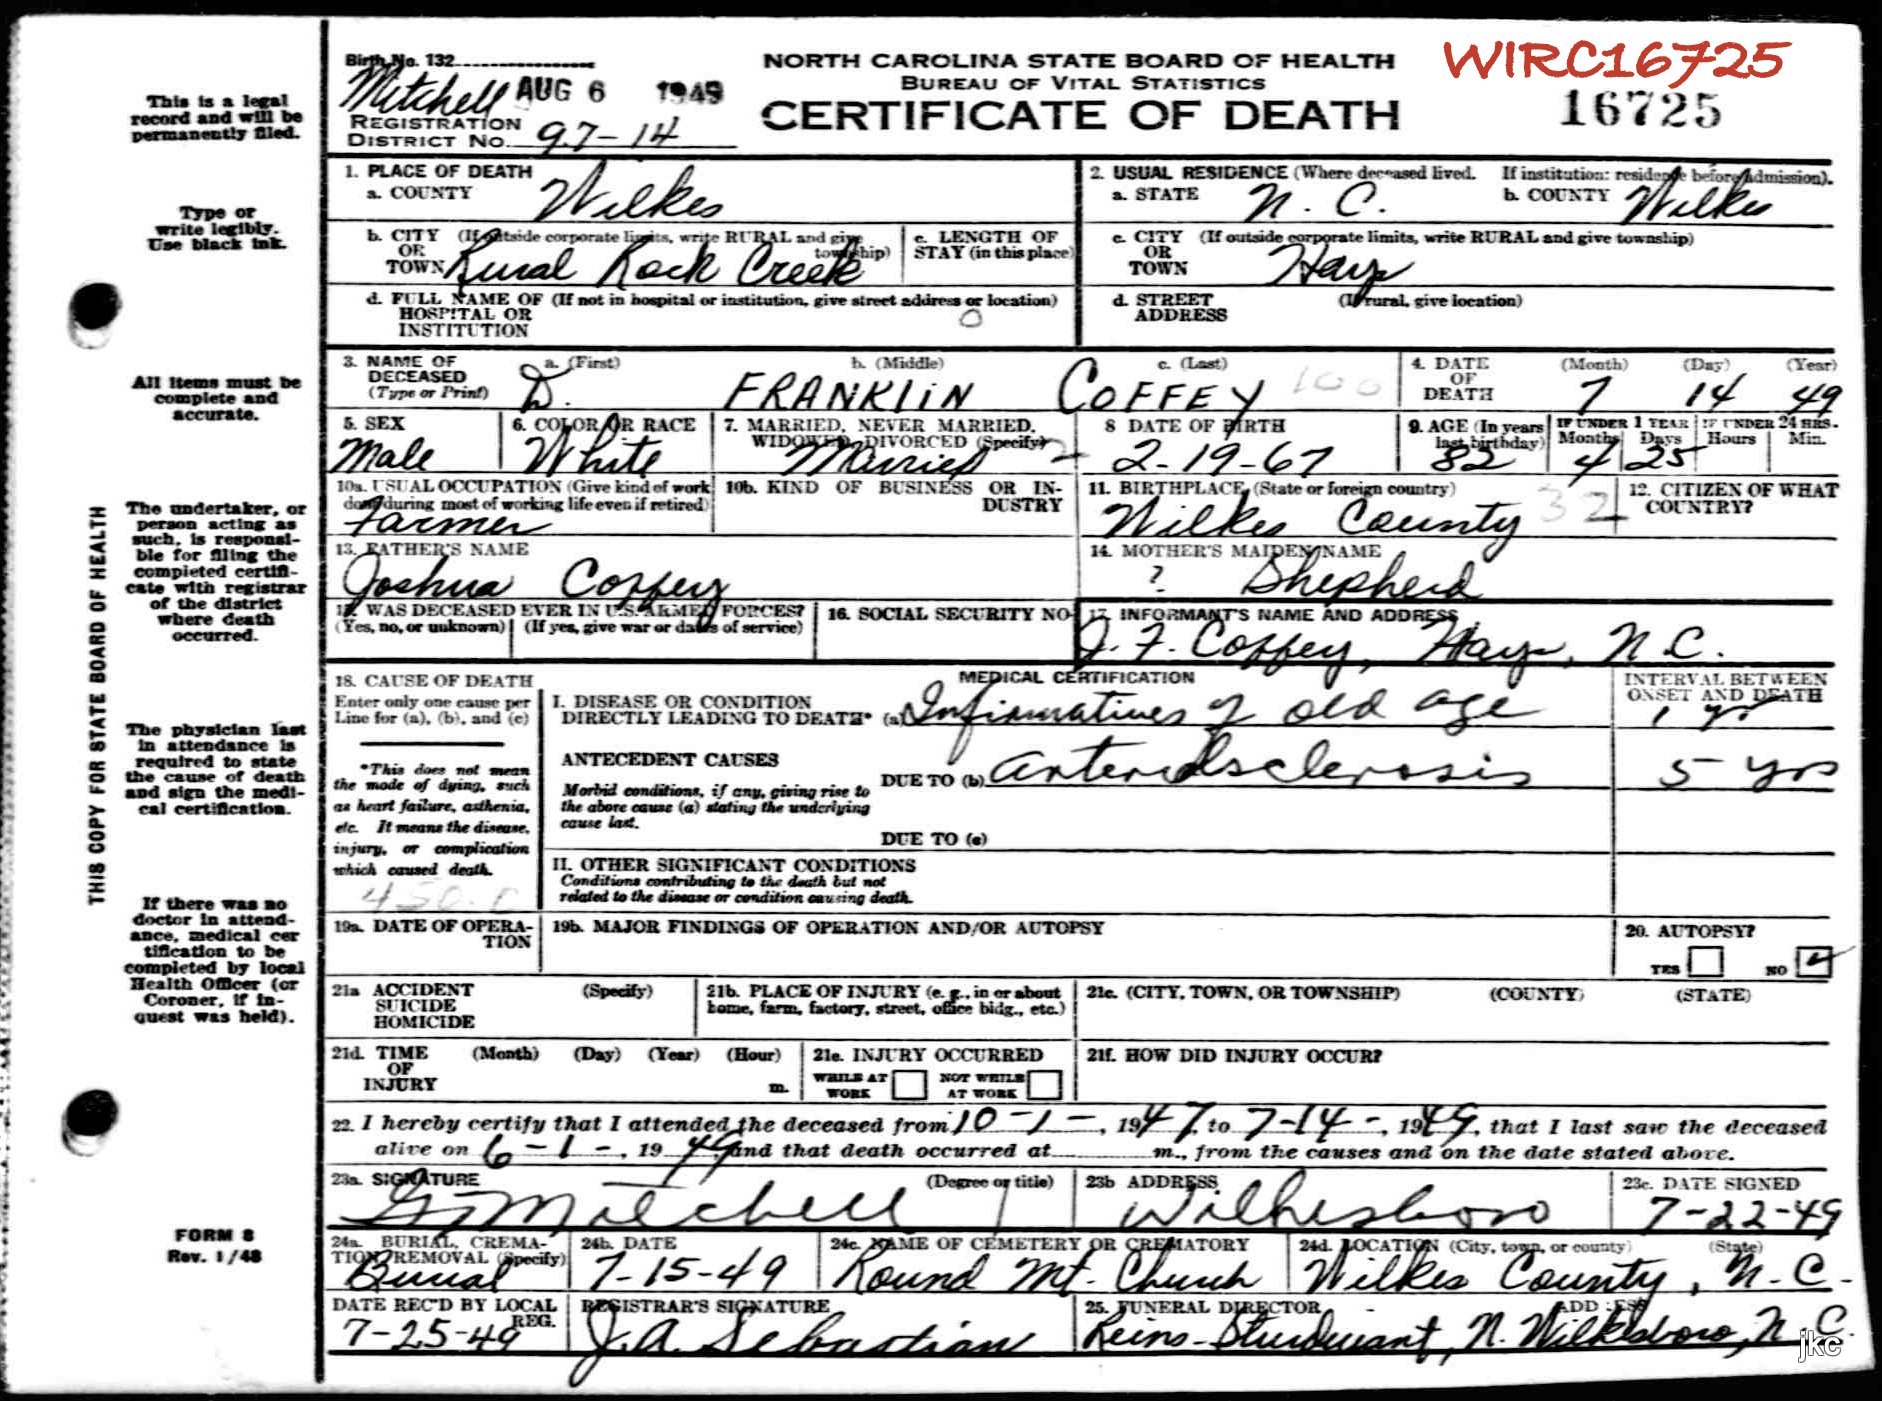 WIRC16725
Birth No. 132
Mitchell AUG 6 1949
NORTH CAROLINA STATE BOARD OF HEALTH
BUREAU OF VITAL STATISTICS
CERTIFICATE OF DEATH
16725
REGISTRATION
DISTRICT No. 97-14
This is a legal
record and will be
permanently filed.
Type or
write legibly.
Use black ink.
All items must be
complete and
accurate.
The undertaker, or
person acting as
such, is responsi-
ble for filing the
completed certifi-
cate with registrar
of the district
where death
occurred.
The physician last
in attendance is
required to state
the cause of death
and sign the medi-
cal certification.
If there was no
doctor in attend-
ance, medical cer
tification to be
completed by local
Health Officer (or
Coroner, if in-
quest was held).
FORM 8
Rev. 1/48
THIS COPY FOR STATE BOARD OF HEALTH
1. PLACE OF DEATH
a. COUNTY Wilkes
2. USUAL RESIDENCE (Where deceased lived. If institution: residence before admission).
a. STATE N. C. b. COUNTY Wilkes
b. CITY (If outside corporate limits, write RURAL and give township)
OR
TOWN Rural Rock Creek
c. LENGTH OF
STAY (in this place)
c. CITY (If outside corporate limits, write RURAL and give township)
OR
TOWN Hays
d. FULL NAME OF (If not in hospital or institution, give street address or location)
HOSPITAL OR
INSTITUTION
0
d. STREET (If rural, give location)
ADDRESS
3. NAME OF DECEASED (Type or Print)
a. (First) b. (Middle) c. (Last)
D. FRANKLIN COFFEY 100
4. DATE OF DEATH (Month) (Day) (Year)
7 14 49
5. SEX
Male
6. COLOR OR RACE
White
7. MARRIED, NEVER MARRIED,
WIDOWED, DIVORCED (Specify)
Married 2
8 DATE OF BIRTH
2-19-67
9. AGE (In years last birthday)
82
IF UNDER 1 YEAR IF UNDER 24 HRS.
Months Days Hours Min.
4 25
10a. USUAL OCCUPATION (Give kind of work
done during most of working life even if retired)
Farmer
10b. KIND OF BUSINESS OR IN-
DUSTRY
11. BIRTHPLACE (State or foreign country)
Wilkes County 32
12. CITIZEN OF WHAT
COUNTRY?
13. FATHER'S NAME
Joshua Coffey
14. MOTHER'S MAIDEN NAME
? Shepherd
15. WAS DECEASED EVER IN U.S. ARMED FORCES?
(Yes, no, or unknown) (If yes, give war or dates of service)
16. SOCIAL SECURITY NO
17. INFORMANT'S NAME AND ADDRESS
J. F. Coffey, Hays, N.C.
18. CAUSE OF DEATH
Enter only one cause per
Line for (a), (b), and (c)
*This does not mean
the mode of dying, such
as heart failure, asthenia,
etc. It means the disease,
injury, or complication
which caused death.
450.0
MEDICAL CERTIFICATION
INTERVAL BETWEEN
ONSET AND DEATH
I. DISEASE OR CONDITION
DIRECTLY LEADING TO DEATH* (a) Infirmatives of old age 1 yr
ANTECEDENT CAUSES
DUE TO (b) Arteriosclerosis 5 yrs
Morbid conditions, if any, giving rise to
the above cause (a) stating the underlying
cause last.
DUE TO (c)
II. OTHER SIGNIFICANT CONDITIONS
Conditions contributing to the death but not
related to the disease or condition causing death.
19a. DATE OF OPERA-
TION
19b. MAJOR FINDINGS OF OPERATION AND/OR AUTOPSY
20. AUTOPSY?
YES NO
21a ACCIDENT (Specify)
SUICIDE
HOMICIDE
21b. PLACE OF INJURY (e. g., in or about
home, farm, factory, street, office bldg., etc.)
21c. (CITY, TOWN, OR TOWNSHIP) (COUNTY) (STATE)
21d. TIME (Month) (Day) (Year) (Hour)
OF
INJURY m.
21e. INJURY OCCURRED
WHILE AT WORK NOT WHILE AT WORK
21f. HOW DID INJURY OCCUR?
22. I hereby certify that I attended the deceased from 10-1-, 1947, to 7-14-, 1949, that I last saw the deceased
alive on 6-1-, 1949 and that death occurred at m., from the causes and on the date stated above.
23a. SIGNATURE (Degree or title)
Mitchell
23b ADDRESS
Wilkesboro
23c. DATE SIGNED
7-22-49
24a. BURIAL, CREMA-
TION, REMOVAL (Specify)
Burial
24b. DATE
7-15-49
24c. NAME OF CEMETERY OR CREMATORY
Round Mt. Church
24d. LOCATION (City, town, or county) (State)
Wilkes County, N.C.
DATE REC'D BY LOCAL
REG.
7-25-49
REGISTRAR'S SIGNATURE
J. A. Sebastian
25. FUNERAL DIRECTOR ADDRESS
Reins-Sturdivant, N. Wilkesboro, N.C.
jkc